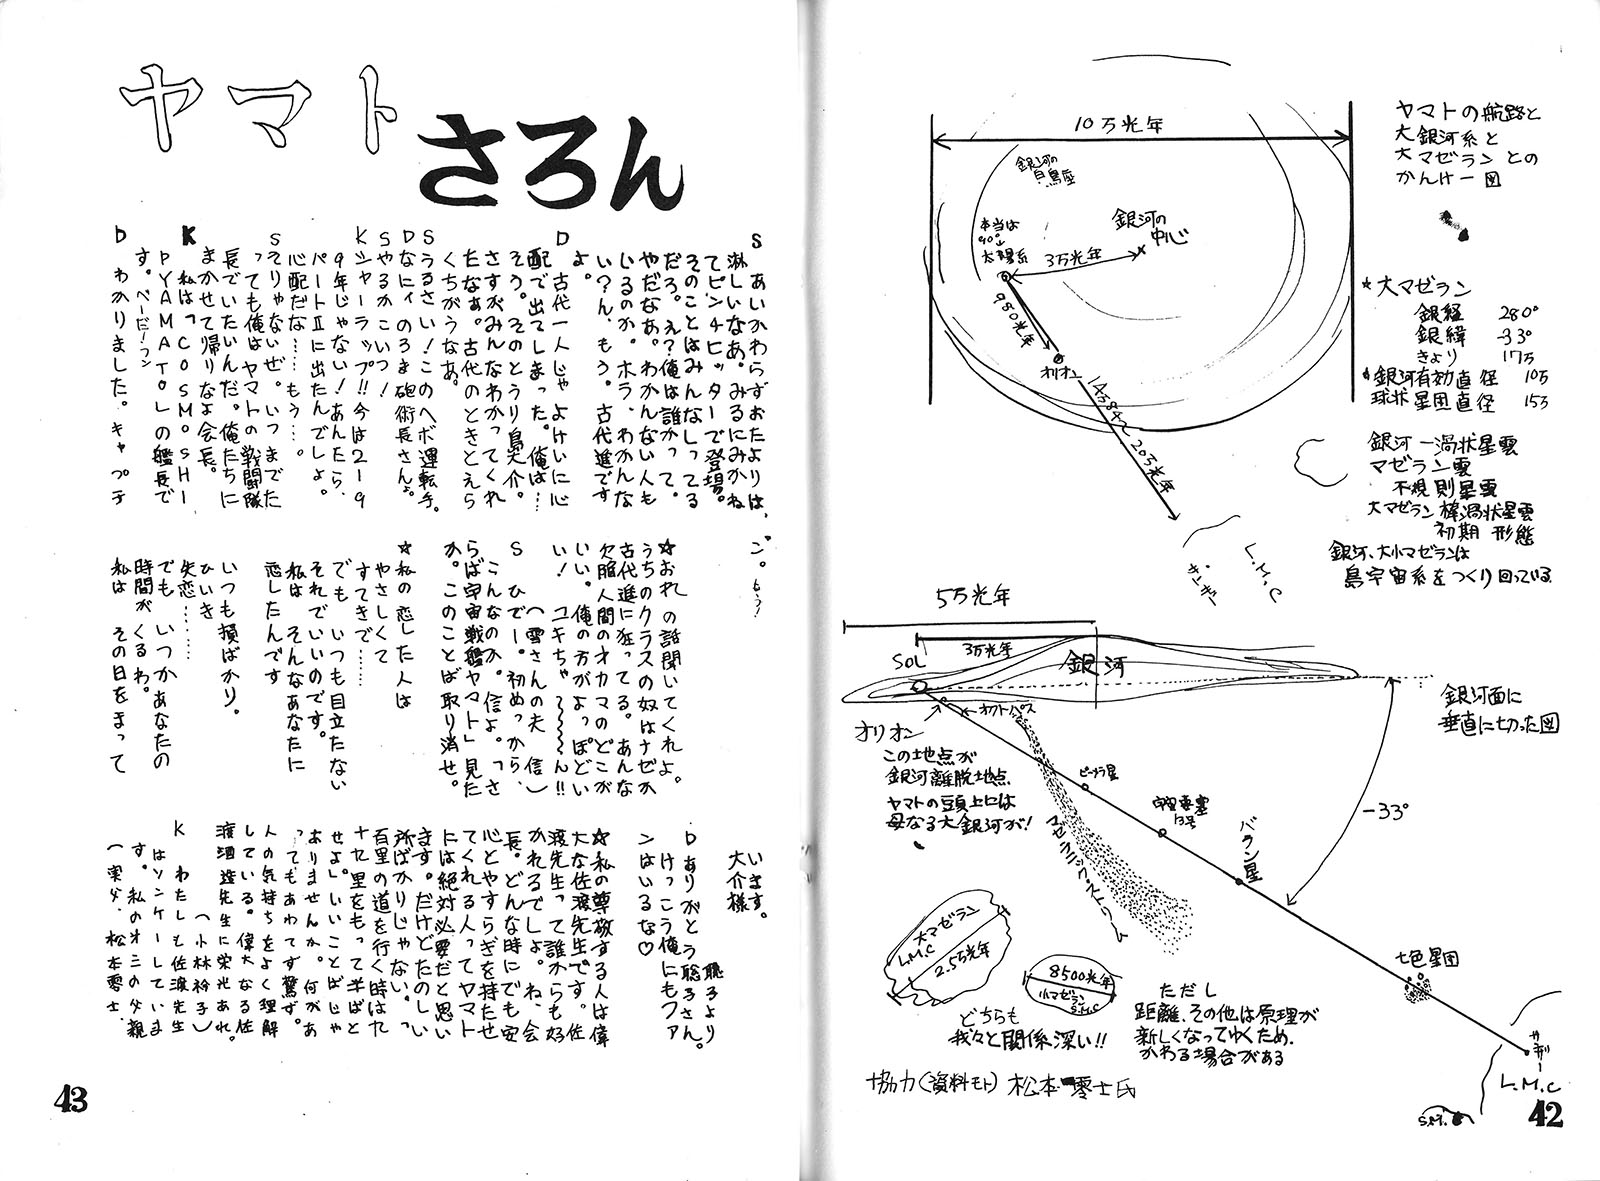 ヤマトの航路と
大銀河系と
大マゼランとの
かんけー図
10万光年
銀河の
白鳥座
本当は
90°↓
太陽系
銀河の
中心
3万光年
980光年
オリオン
14万8千~20万光年
サンザー
L.M.C
★大マゼラン
銀経 280°
銀緯 -33°
きょり 17万
銀河有効直径 10万
球状星団直径 15万
銀河―渦状星雲
マゼラン雲
不規則星雲
大マゼラン棒渦状星雲
初期形態
銀河、大小マゼランは
島宇宙系をつくり回っている
5万光年
3万光年
SOL
銀河
銀河面に
垂直に切った図
オリオン
オクトパス
この地点が
銀河離脱地点
ヤマトの頭上には
母なる大銀河が!
ビーメラ星
宇宙要塞
13号
バラン星
-33°
マゼラニック・ストリーム
七色星団
大マゼラン
L.M.C
2.5万光年
8500光年
小マゼラン
S.M.C
どちらも
我々と関係深い!!
ただし
距離、その他は原理が
新しくなってゆくため、
かわる場合がある
協力(資料モト)松本零士氏
サンザー
L.M.C
42
ヤマト
さろん
S あいかわらずおたよりは、
淋しいなあ。みるにみかね
てピンチヒッターで登場。
そのことはみんなしってる
だろ。え?俺は誰かって。
やだなあ。わかんない人も
いるのか。ホラ、わかんな
い?ん、もう。古代進です
よ。
D 古代一人じゃよけいに心
配で出てしまった。俺は…
そう。そのとうり島大介。
さすがみんなわかってくれ
たなぁ。古代のときとえら
くちがうなあ。
Sうるさい!このヘボ運転手。
Dなにィのろま砲術長さん。
Sやるかこいつ!
Kシャーラップ!!今は219
9年じゃない!あんたら、
パートⅡに出たんでしょ。
心配だな……もう…。
Sそりゃないぜ。いつまでた
っても俺はヤマトの戦闘隊
長でいたいんだ。俺たちに
まかせて帰りなよ会長。
K 私は「COSMO SHI
P YAMATO」の艦長で
す。べーだ!フン
D わかりました。キャプテ
ン。もう!
★おれの話聞いてくれよ。
うちのクラスの奴はナゼか
古代進に狂ってる。あんな
欠陥人間のオカマのどこが
いい。俺の方がよっぽどい
い!ユキちゃ~~~~ん!!
(雪さんの夫 信)
S ひでー。初めっから、
こんなのか。信よ。「さ
らば宇宙戦艦ヤマト」見た
か。このことば取り消せ。
★私の恋した人は
やさしくて
すてきで……
でも いつも目立たない
それでいいのです。
私は そんなあなたに
恋したんです
いつも損ばかり。
ひいき
失恋………
でも いつかあなたの
時間がくるわ。
私は その日をまって
います。
大介様
聡子より
D ありがとう聡子さん。
けっこう俺にもファ
ンはいるな♡
★私の尊敬する人は偉
大な佐渡先生です。佐
渡先生って誰からも好
かれるでしょ。ね、会
長。どんな時にでも安
心とやすらぎを持たせ
てくれる人ってヤマト
には絶対必要だと思い
ます。だけどたのしい
所ばかりじゃない。「
百里の道を行く時は九
十九里をもって半ばと
せよ」いいことばじゃ
ありませんか。何があ
ってもあわてず驚ず。
人の気持ちをよく理解
している。偉大なる佐
渡酒造先生に栄光あれ。
(小林裕子)
K わたしも佐渡先生
はソンケーしていま
す。私のオ三の父親
(実父、松本零士、
43